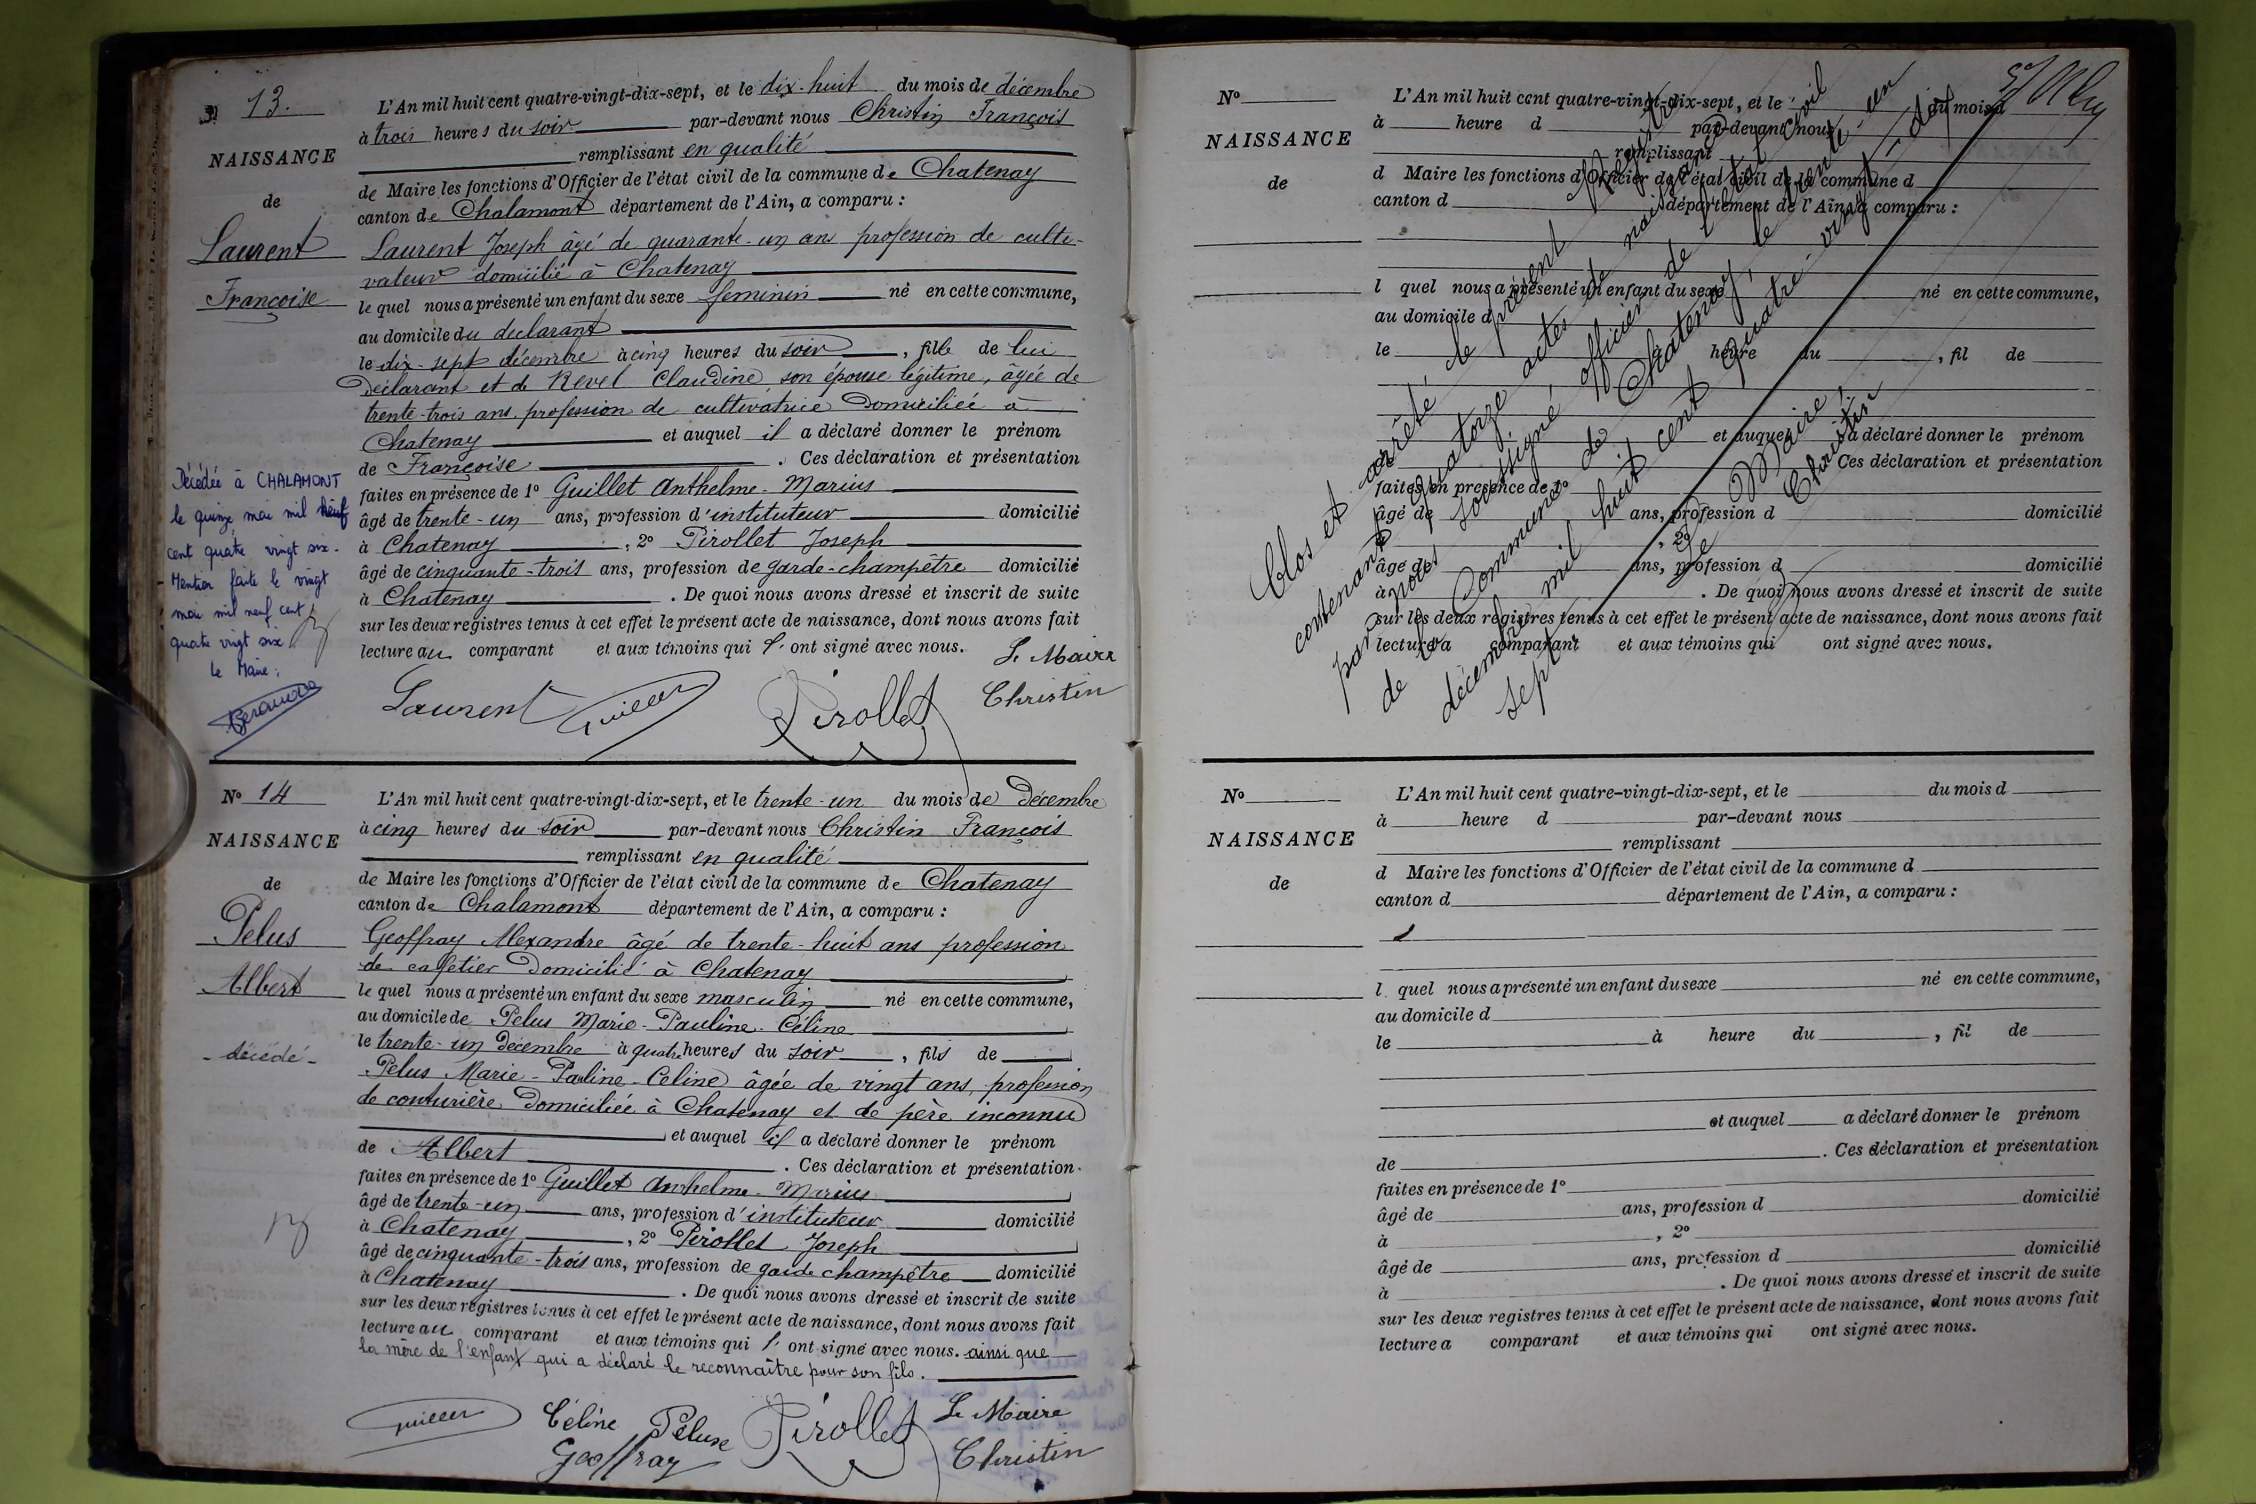 N° 13.
NAISSANCE
de
Laurent
Françoise
L'An mil huit cent quatre-vingt-dix-sept, et le dix-huit du mois de décembre
à trois heures du soir par-devant nous Christin François
remplissant en qualité
de Maire les fonctions d'Officier de l'état civil de la commune de Chatenay
canton de Chalamont département de l'Ain, a comparu :
Laurent Joseph âgé de quarante-un ans profession de culti-
vateur domicilié à Chatenay
lequel nous a présenté un enfant du sexe féminin né en cette commune,
au domicile du déclarant
le dix-sept décembre à cinq heures du soir, fille de lui
Déclarant et de Revel Claudine, son épouse légitime, âgée de
trente-trois ans, profession de cultivatrice Domiciliée à
Chatenay et auquel il a déclaré donner le prénom
de Françoise. Ces déclaration et présentation
faites en présence de 1° Guillet Anthelme-Marius
âgé de trente-un ans, profession d'instituteur domicilié
à Chatenay, 2° Pirollet Joseph
âgé de cinquante-trois ans, profession de garde-champêtre domicilié
à Chatenay. De quoi nous avons dressé et inscrit de suite
sur les deux registres tenus à cet effet le présent acte de naissance, dont nous avons fait
lecture au comparant et aux témoins qui l'ont signé avec nous. Le Maire
Laurent Guillet Pirollet Christin
Décédée à CHALAMONT
le quinze mai mil neuf
cent quatre vingt six.
Mention faite le vingt
mai mil neuf cent
quatre vingt six
Le Maire :
N° 14
NAISSANCE
de
Pelus
Albert
- décédé -
L'An mil huit cent quatre-vingt-dix-sept, et le trente-un du mois de Décembre
à cinq heures du soir par-devant nous Christin François
remplissant en qualité
de Maire les fonctions d'Officier de l'état civil de la commune de Chatenay
canton de Chalamont département de l'Ain, a comparu :
Geoffray Alexandre âgé de trente-huit ans profession
de cafetier Domicilié à Chatenay
lequel nous a présenté un enfant du sexe masculin né en cette commune,
au domicile de Pelus Marie-Pauline-Céline
le trente-un Décembre à quatre heures du soir, fils de
Pelus Marie-Pauline-Céline âgée de vingt ans, profession
de couturière Domiciliée à Chatenay et de père inconnu
et auquel il a déclaré donner le prénom
de Albert. Ces déclaration et présentation
faites en présence de 1° Guillet Anthelme-Marius
âgé de trente-un ans, profession d'instituteur domicilié
à Chatenay, 2° Pirollet Joseph
âgé de cinquante-trois ans, profession de garde champêtre domicilié
à Chatenay. De quoi nous avons dressé et inscrit de suite
sur les deux registres tenus à cet effet le présent acte de naissance, dont nous avons fait
lecture au comparant et aux témoins qui l'ont signé avec nous. ainsi que
la mère de l'enfant qui a déclaré le reconnaître pour son fils.
Guillet Céline Péluse Pirollet Le Maire
Geoffray Christin
N°
NAISSANCE
de
L'An mil huit cent quatre-vingt-dix-sept, et le du mois d
à heure d par-devant nous
remplissant
d Maire les fonctions d'Officier de l'état civil de la commune d
canton d département de l'Ain, a comparu :
l quel nous a présenté un enfant du sexe né en cette commune,
au domicile d
le à heure du , fil de
et auquel a déclaré donner le prénom
de . Ces déclaration et présentation
faites en présence de 1°
âgé de ans, profession d domicilié
à , 2°
âgé de ans, profession d domicilié
à . De quoi nous avons dressé et inscrit de suite
sur les deux registres tenus à cet effet le présent acte de naissance, dont nous avons fait
lecture a comparant et aux témoins qui ont signé avec nous.
Clos et arrêté le présent registre
contenant quatorze actes de naissance
par nous soussigné officier de l'état civil
de la Commune de Chatenay, le trente-un
décembre mil huit cent quatre-vingt-dix
sept.
Le Maire
Christin
N°
NAISSANCE
de
L'An mil huit cent quatre-vingt-dix-sept, et le du mois d
à heure d par-devant nous
remplissant
d Maire les fonctions d'Officier de l'état civil de la commune d
canton d département de l'Ain, a comparu :
l quel nous a présenté un enfant du sexe né en cette commune,
au domicile d
le à heure du , fil de
et auquel a déclaré donner le prénom
de . Ces déclaration et présentation
faites en présence de 1°
âgé de ans, profession d domicilié
à , 2°
âgé de ans, profession d domicilié
à . De quoi nous avons dressé et inscrit de suite
sur les deux registres tenus à cet effet le présent acte de naissance, dont nous avons fait
lecture a comparant et aux témoins qui ont signé avec nous.